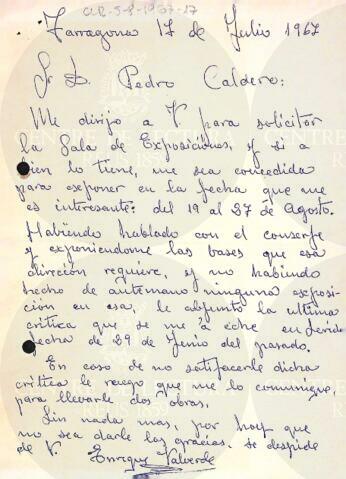 CLR-5-8-1967-17
Tarragona 17 de Julio 1967
Sr D. Pedro Caldero:
Me dirijo a V para solicitar
la Sala de Exposiciónes, y si a
bien lo tiene, me sea concedida
para exponer en la fecha que me
es interesante: del 19 al 27 de Agosto.
Habiendo hablado con el conserje
y exponiendome las bases que esa
dirección requiere, y no habiendo
hecho de antemano ninguna exposi-
ción en esa, le adjunto la ultima
critica que se me a eche en
fecha de 29 de Junio del pasado.
En caso de no satisfacerle dicha
critica le ruego que me lo comunique,
para llevarle dos obras.
Sin nada mas, por hoy que
no sea darle las gracias. se despide
de V. Enrique Valverde
CENTRE DE LECTURA
REUS 1859